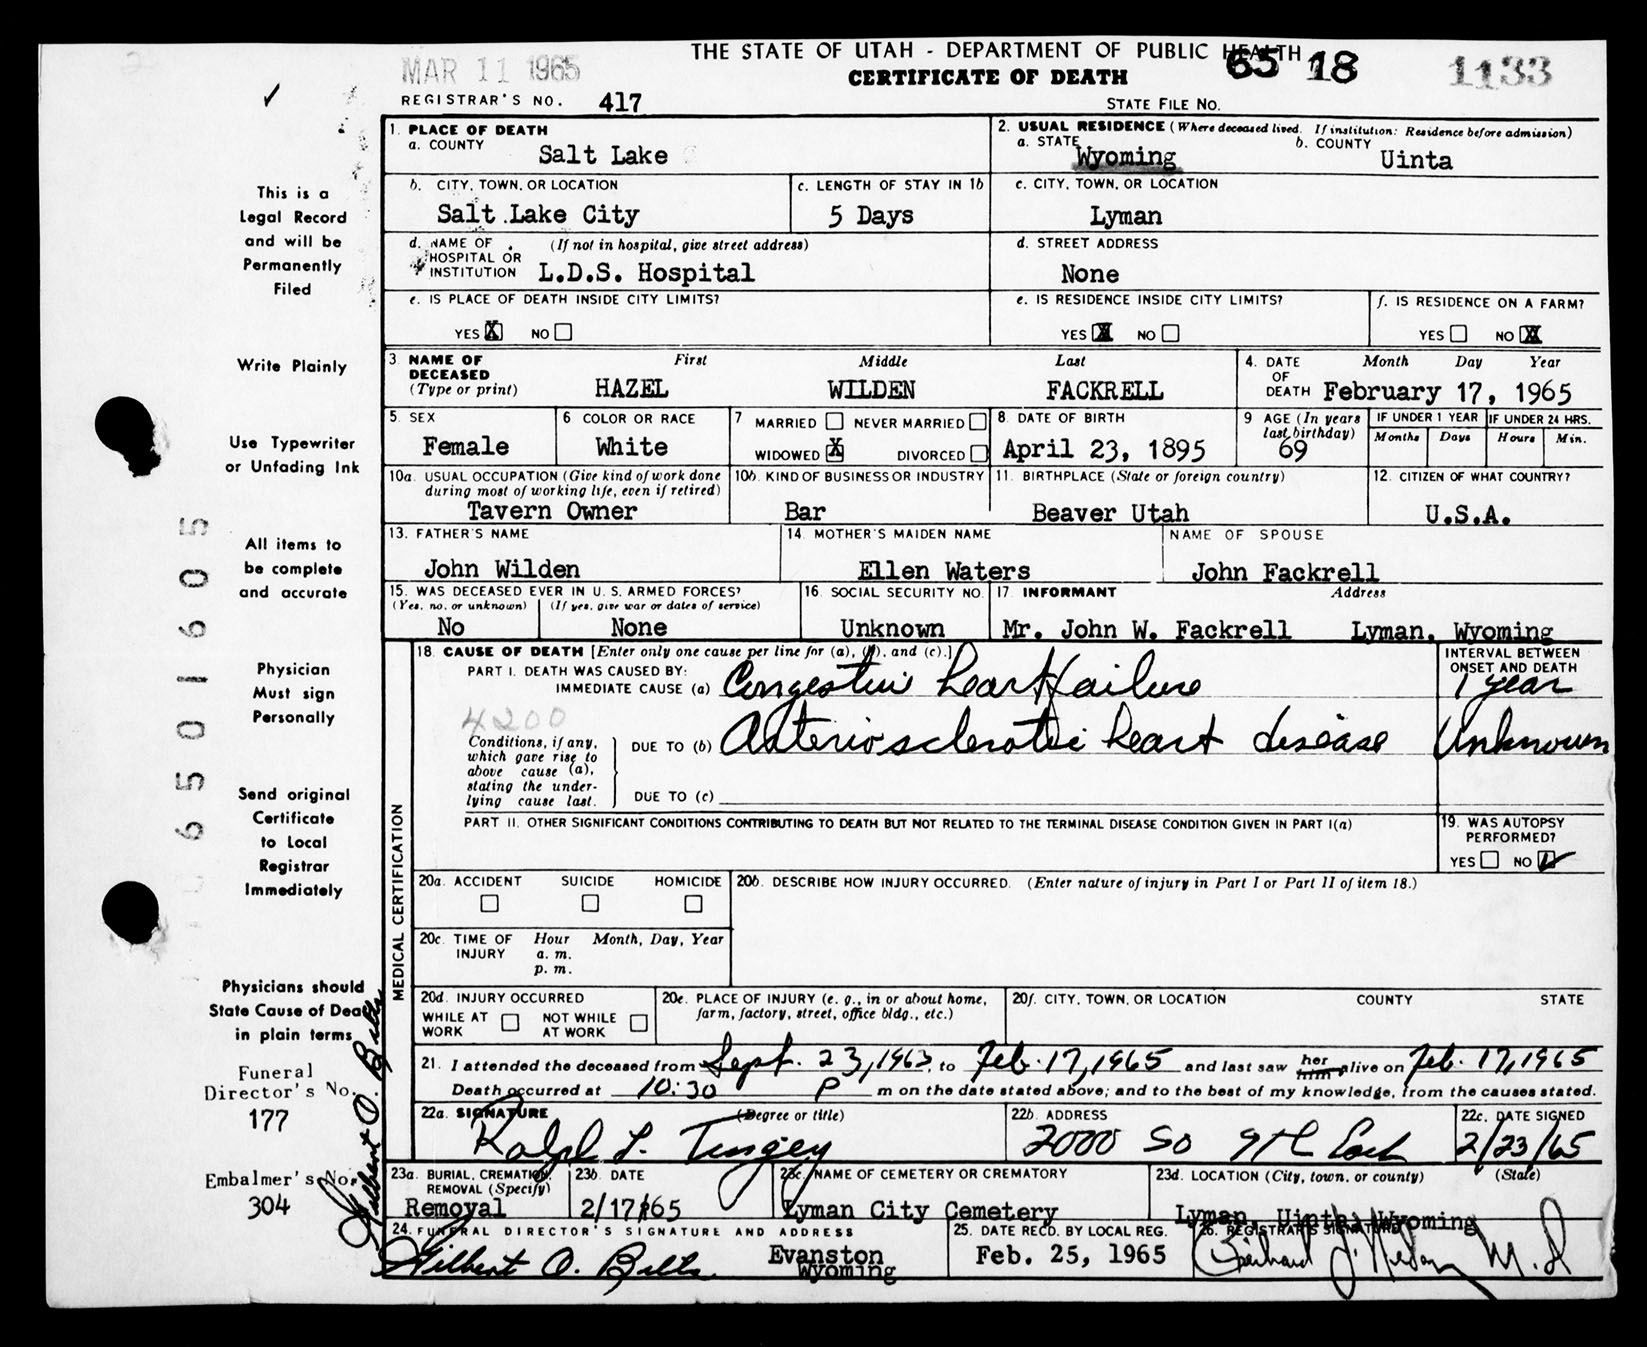 THE STATE OF UTAH - DEPARTMENT OF PUBLIC HEALTH
MAR 11 1965
CERTIFICATE OF DEATH
65 18
1133
REGISTRAR'S NO. 417
STATE FILE NO.
1. PLACE OF DEATH
a. COUNTY
Salt Lake
2. USUAL RESIDENCE (Where deceased lived. If institution: Residence before admission)
a. STATE
Wyoming
b. COUNTY
Uinta
b. CITY, TOWN, OR LOCATION
Salt Lake City
c. LENGTH OF STAY IN 1b
5 Days
c. CITY, TOWN, OR LOCATION
Lyman
d. NAME OF HOSPITAL OR INSTITUTION
(If not in hospital, give street address)
L.D.S. Hospital
d. STREET ADDRESS
None
e. IS PLACE OF DEATH INSIDE CITY LIMITS?
YES X NO
e. IS RESIDENCE INSIDE CITY LIMITS?
YES X NO
f. IS RESIDENCE ON A FARM?
YES NO X
3. NAME OF DECEASED (Type or print)
First Middle Last
HAZEL WILDEN FACKRELL
4. DATE OF DEATH
Month Day Year
February 17, 1965
5. SEX
Female
6 COLOR OR RACE
White
7 MARRIED NEVER MARRIED
WIDOWED X DIVORCED
8 DATE OF BIRTH
April 23, 1895
9 AGE (In years last birthday)
69
IF UNDER 1 YEAR
Months Days
IF UNDER 24 HRS.
Hours Min.
10a. USUAL OCCUPATION (Give kind of work done during most of working life, even if retired)
Tavern Owner
10b. KIND OF BUSINESS OR INDUSTRY
Bar
11. BIRTHPLACE (State or foreign country)
Beaver Utah
12. CITIZEN OF WHAT COUNTRY?
U.S.A.
13. FATHER'S NAME
John Wilden
14. MOTHER'S MAIDEN NAME
Ellen Waters
NAME OF SPOUSE
John Fackrell
15. WAS DECEASED EVER IN U. S. ARMED FORCES?
(Yes, no, or unknown) (If yes, give war or dates of service)
No None
16. SOCIAL SECURITY NO.
Unknown
17 INFORMANT Address
Mr. John W. Fackrell Lyman, Wyoming
MEDICAL CERTIFICATION
18. CAUSE OF DEATH [Enter only one cause per line for (a), (b), and (c).]
INTERVAL BETWEEN ONSET AND DEATH
PART I. DEATH WAS CAUSED BY:
IMMEDIATE CAUSE (a) Congestive heart failure 1 year
4200
Conditions, if any, which gave rise to above cause (a), stating the underlying cause last.
DUE TO (b) Arteriosclerotic heart disease Unknown
DUE TO (c)
PART II. OTHER SIGNIFICANT CONDITIONS CONTRIBUTING TO DEATH BUT NOT RELATED TO THE TERMINAL DISEASE CONDITION GIVEN IN PART I(a)
19. WAS AUTOPSY PERFORMED?
YES NO ✓
20a. ACCIDENT SUICIDE HOMICIDE
20b. DESCRIBE HOW INJURY OCCURRED. (Enter nature of injury in Part I or Part II of item 18.)
20c. TIME OF INJURY
Hour Month, Day, Year
a. m.
p. m.
20d. INJURY OCCURRED
WHILE AT WORK NOT WHILE AT WORK
20e. PLACE OF INJURY (e. g., in or about home, farm, factory, street, office bldg., etc.)
20f. CITY, TOWN, OR LOCATION COUNTY STATE
21. I attended the deceased from Sept. 23, 1963, to Feb. 17, 1965 and last saw her him alive on Feb. 17, 1965
Death occurred at 10:30 P m on the date stated above; and to the best of my knowledge, from the causes stated.
22a. SIGNATURE (Degree or title)
Ralph L. Tingey
22b. ADDRESS
2000 So 9th East
22c. DATE SIGNED
2/23/65
23a. BURIAL, CREMATION, REMOVAL (Specify)
Removal
23b DATE
2/17/65
23c. NAME OF CEMETERY OR CREMATORY
Lyman City Cemetery
23d. LOCATION (City, town, or county) (State)
Lyman, Uinta, Wyoming
24. FUNERAL DIRECTOR'S SIGNATURE AND ADDRESS
Gilbert O. Bills
Evanston
Wyoming
25. DATE RECD. BY LOCAL REG.
Feb. 25, 1965
26. REGISTRAR'S SIGNATURE
M.D.
This is a
Legal Record
and will be
Permanently
Filed
Write Plainly
Use Typewriter
or Unfading Ink
All items to
be complete
and accurate
Physician
Must sign
Personally
Send original
Certificate
to Local
Registrar
Immediately
Physicians should
State Cause of Death
in plain terms
Funeral
Director's No.
177
Embalmer's No.
304
Gilbert O. Bills
6501605